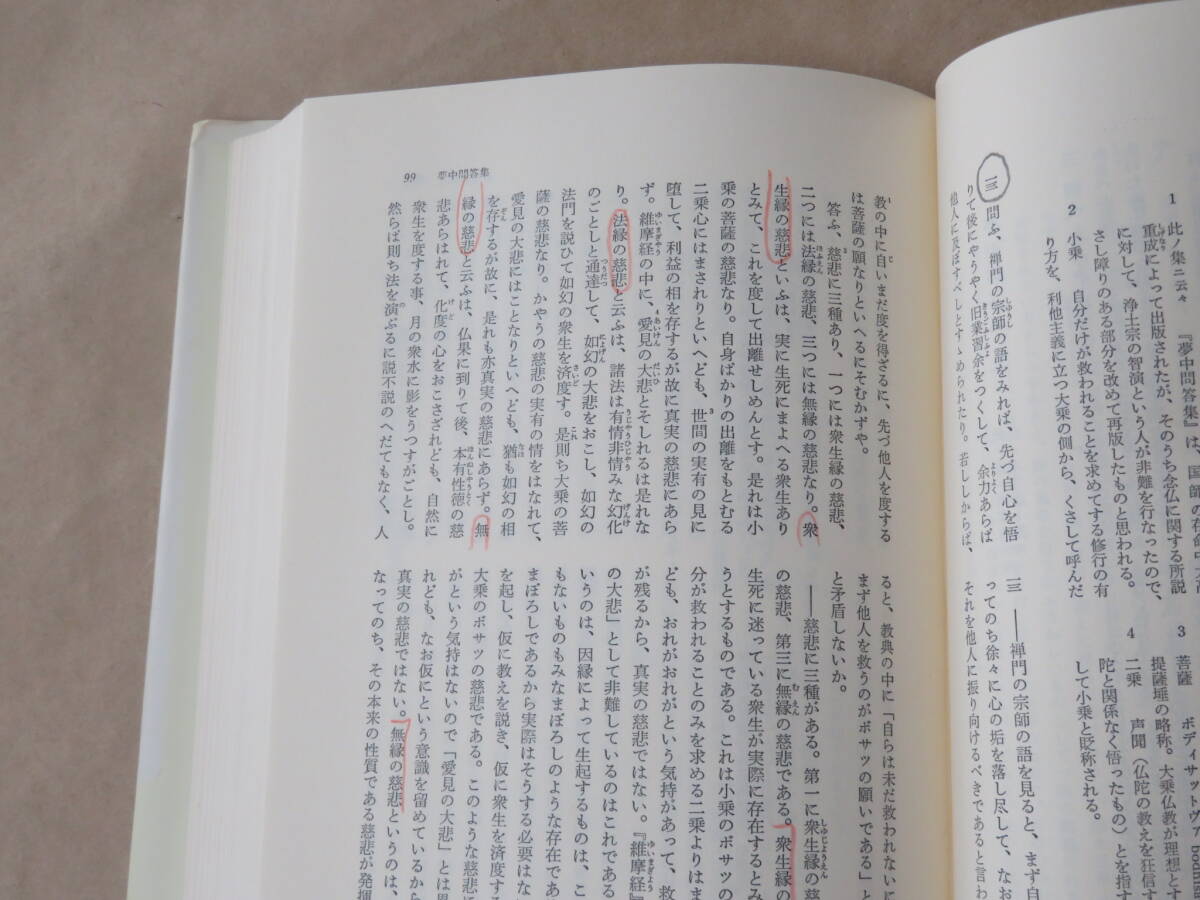 1 此ノ集ニ云々 『夢中問答集』は、国師の
重成によって出版されたが、そのうち念仏に関する所説
に対して、浄土宗の智演という人が非難を行なったので、
さし障りのある部分を改めて再版したものと思われる。
2 小乗 自分だけが救われることを求めてする修行の有
り方を、利他主義に立つ大乗の側から、くさして呼んだ
3 菩薩 ボディサットヴ
提薩埵の略称。大乗仏教が理想とす
4 二乗 声聞(仏陀の教えを狂信す
陀と関係なく悟ったもの)とを指す
して小乗と貶称される。
一三 問ふ、禅門の宗師の語をみれば、先づ自心を悟
りて後にやうやく旧業習余をつくして、余力あらば
他人に及ぼすべしとすゝめられたり。若ししからば、
一三 ――禅門の宗師の語を見ると、まず自
ってのち徐々に心の垢を落し尽して、なお
それを他人に振り向けるべきであると言わ
99 夢中問答集
教の中に自いまだ度を得ざるに、先づ他人を度する
は菩薩の願なりといへるにそむかずや。
答ふ、慈悲に三種あり、一つには衆生縁の慈悲、
二つには法縁の慈悲、三つには無縁の慈悲なり。衆
生縁の慈悲といふは、実に生死にまよへる衆生あり
とみて、これを度して出離せしめんとす。是れは小
乗の菩薩の慈悲なり。自身ばかりの出離をもとむる
二乗心にはまされりといへども、世間の実有の見に
堕して、利益の相を存するが故に真実の慈悲にあら
ず。維摩経の中に、愛見の大悲とそしれるは是れな
り。法縁の慈悲と云ふは、諸法は有情非情みな幻化
のごとしと通達して、如幻の大悲をおこし、如幻の
法門を説ひて如幻の衆生を済度す。是則ち大乗の菩
薩の慈悲なり。かやうの慈悲の実有の情をはなれて、
愛見の大悲にはことなりといへども、猶も如幻の相
を存するが故に、是れも亦真実の慈悲にあらず。無
縁の慈悲と云ふは、仏果に到りて後、本有性徳の慈
悲あらはれて、化度の心をおこさざれども、自然に
衆生を度する事、月の衆水に影をうつすがごとし。
然らば則ち法を演ぶるに説不説のへだてもなく、人
ると、教典の中に「自らは未だ救われないに
まず他人を救うのがボサツの願いである」と
と矛盾しないか。
――慈悲に三種がある。第一に衆生縁の慈
の慈悲、第三に無縁の慈悲である。衆生縁の
生死に迷っている衆生が実際に存在するとみ
うとするものである。これは小乗のボサツの
分が救われることのみを求める二乗よりはま
ども、おれがおれがという気持があって、救
が残るから、真実の慈悲ではない。『維摩経』
の大悲」として非難しているのはこれである
いうのは、因縁によって生起するものは、こ
もないものもみなまぼろしのような存在であ
まぼろしであるから実際はそうする必要はな
を起し、仮に教えを説き、仮に衆生を済度する
大乗のボサツの慈悲である。このような慈悲
がという気持はないので「愛見の大悲」とは異
れども、なお仮にという意識を留めているから
真実の慈悲ではない。無縁の慈悲というのは、
なってのち、その本来の性質である慈悲が発揮